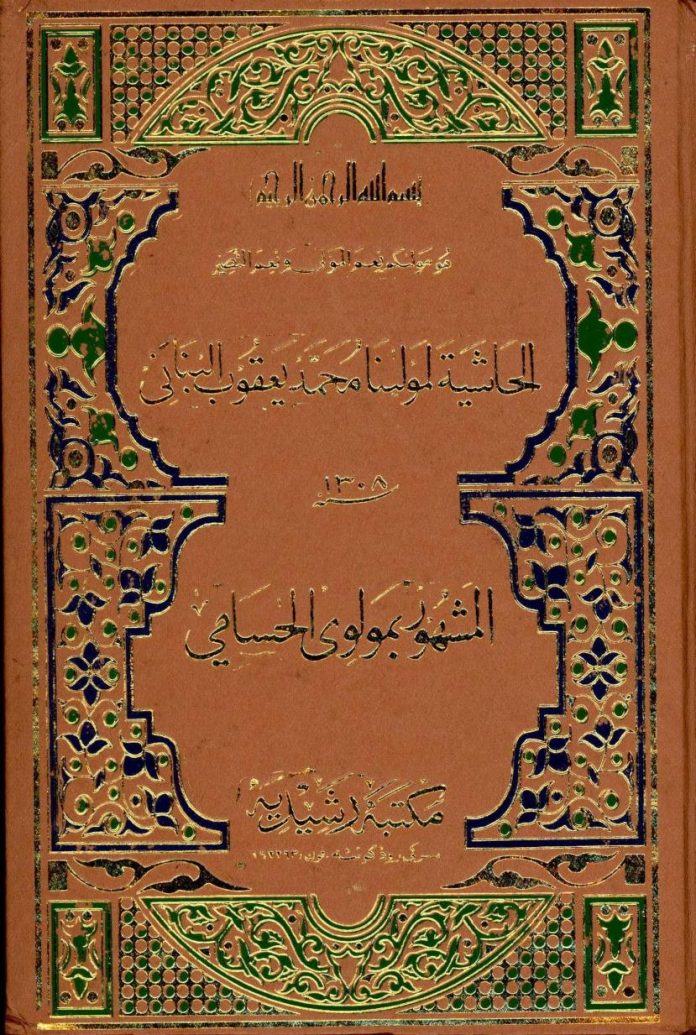 بسم الله الرحمن الرحيم
هو مولىكم نعم المولى و نعم النصير
الحاشية لمولينا محمد يعقوب البنانى
سنه ١٣٠٨
المشهور بمولوى الحسامي
مكتبه رشيديه
سركى رود كوئٹه